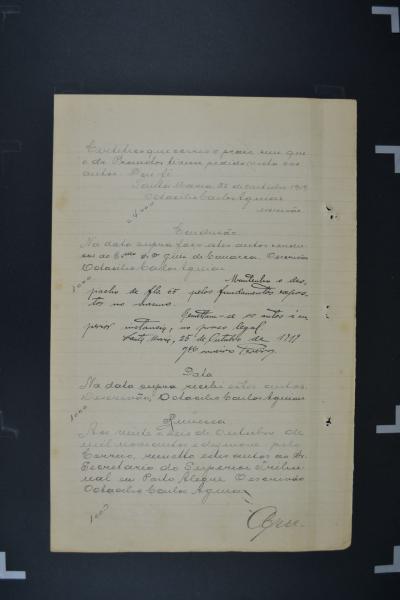 Certifico que correu o praso sem que
o dr. Promotor tivesse pedido vista dos
autos. Dou fé.
Santa Maria 25 de outubro 1919
Octacilio Carlos Aguiar
escrivão
Conclusão
Na data supra faço estes autos conclu
sos ao Exmo. Dr. Juiz da Comarca. O escrivão
Octacilio Carlos Aguiar
1000
Mantenho o des
pacho de fls. 55 pelos fundamentos expos
tos no mesmo.
Remettam-se os autos á su
perior instancia, no praso legal.
Santa Maria, 25 de Outubro de 1919
Data
Na data supra recebi estes autos.
O escrivão, Octacilio Carlos Aguiar
1000
Remessa
Aos vinte e seis de Outubro de
mil novecentos e desenove pelo
Correio, remetto estes autos ao Sr.
Secretario do Superior Tribu
nal em Porto Alegre. O escrivão
Octacilio Carlos Aguiar
1000